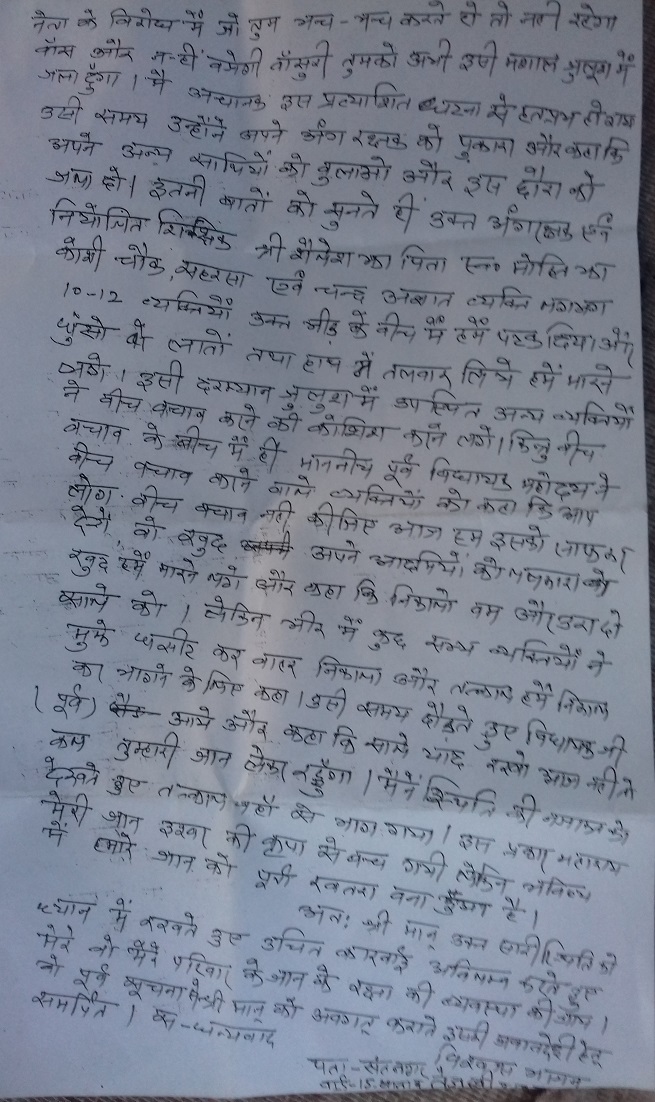 नेता के विरोध में जो तुम भच-भच करते हो तो नहीं रहेगा
बाँस और न हीं बजेगी बाँसुरी तुमको अभी इसी मशाल जुलूस में
जला दुँगा । मैं अचानक इस प्रत्याशित घटना से हतप्रभ हो गया
उसी समय उन्होंने अपने अंग रक्षक को पुकारा और कहा कि
अपने अन्य साथियों को बुलाओ और इस छौरा को
जला दो । इतनी बातों को सुनते हीं उक्त अंगरक्षक एवं
नियोजित शिक्षक श्री शैलेश झा पिता स्व०
कोशी चौक, सहरसा एवं चन्द अज्ञात व्यक्ति लगभग
10-12 व्यक्तियों उक्त भीड़ के बीच में हमें पटक दिया और
घुँसो वो लातों तथा हाथ में तलवार लिये हमें मारने
लगे । इसी दरम्यान जुलुश में उपस्थित अन्य व्यक्तियों
ने बीच बचाव करने की कोशिश करने लगे । किन्तु बीच
बचाव के बीच में ही माननीय पूर्व विधायक महोदय ने
बीच बचाव करने वाले व्यक्तियों को कहा कि आप
लोग बीच बचाव नही कीजिए आज हम इसको साफ कर
देंगे, वो खुद अपने आदमियों को ललकारा वो
खुद हमें मारने लगे और कहा कि निकालो बम और उड़ा दो
साले को । लेकिन भीर में कुछ सभ्य व्यक्तियों ने
मुझे घसीट कर बाहर निकाला और तत्काल हमें निकाल
कर भागने के लिए कहा । उसी समय दौड़ते हुए विधायक जी
( पूर्व ) आये और कहा कि साले याद रखो आज नही तो
कल तुम्हारी जान लेकर रहुँगा । मैंने स्थिति की को
देखते हुए तत्काल वहाँ से भाग गया । इस प्रकार महाशय
मेरी जान इश्वर की कृपा से बच गयी लेकिन भविष्य
में हमारे जान को पूरी खतरा बना हुआ है ।
अतः श्री मान् उक्त सारी स्थिति को
ध्यान में रखते हुए उचित कारवाई करते हुए
मेरे वो मेरे परिवार के जान के रक्षा की व्यवस्था की जाय ।
वो पूर्व सूचना में श्री मान् को अवगत् कराते हेतू
समर्पित । स-धन्यवाद
पता - संतनगर
वार्ड-15